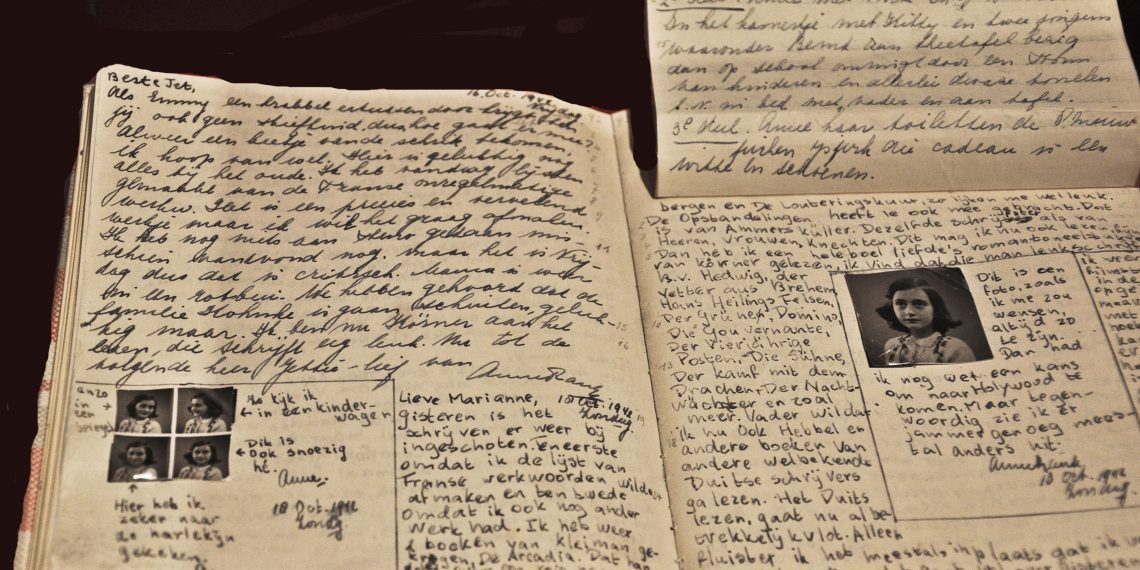 Beste Jet,
16 Oct. 1942
Als Emmy een krabbel ertussen door krijgt, ben
jij ook geen stiefkind, dus hoe gaat er mee?
Alweer een beetje van de schrik bekomen,
ik hoop van wel. Hier is gelukkig nog
alles bij het oude. Ik heb vandaag lijsten
gemaakt van de Franse onregelmatige
werkw. Het is een precies en vervelend
werkje maar ik wil het graag afmaken.
Ik heb nog niets aan steno gedaan mis-
schien vanavond nog, maar het is Vrij-
dag dus dat is critisch. Mama is weer
in een rotbui. We hebben gehoord dat de
familie is gaan schuilen, geluk-
kig maar. Ik ben nu Körner aan het
lezen, die schrijft erg leuk. Nu tot de
volgende keer Jettie-lief van
Anne Frank
anzo
in
een
spiegel
Ho kijk ik
in een kinder-
wagen
Dit is
ook snoezig
hè.
Anne.
18 Oct. 1942
Zondag
Hier heb ik
zeker naar
de harlekijn
gekeken.
Lieve Marianne,
18 Oct. 1942
Zondag
gisteren is het
schrijven er weer bij
ingeschoten. Eneerste
omdat ik de lijst van
Franse werkwoorden wilde
afmaken en ten twede
omdat ik ook nog ander
werk had. Ik heb weer
2 boeken van Kleiman ge-
kregen, De Arcadia. Dat han
In het kamertje met Kitty en twee jongens
waaronder Bernd aan theetafel bezig
dan op school omringd door een
van kinderen en allerlei dwaze
b.v. in bed met vader en aan tafel.
3e deel. Anne haar toiletten de
jurken
witte en schoenen.
bergen en De Louteringskuur, zo lijken me wel leuk.
De Opstandelingen heeft ie ook mee gebracht. Dat
is van Ammers Küller. Dezelfde schrijfster als van
Heeren, Vrouwen, Knechten. Dit mag ik nu ook lezen, fijn
Dan heb ik een heleboel liefdes romantoneelstukken
van Körner gelezen, ik vind dat die man leuk schrijft
B.v. Hedwig, der
Vetter aus Bremen,
Hans Heilings Felsen,
Der Grüne Domino,
Die Gouvernante,
Der Vierjährige
Posten, Die Sühne,
Der kampf mit dem
Drachen, Der Nacht-
wächter en zoal
meer. Vader wil dat
ik nu ook Hebbel en
andere boeken van
andere welbekende
Duitse schrijvers
ga lezen. Het Duits
lezen, gaat nu al be-
trekkelijk vlot. Alleen
fluister ik het meestal, in plaats dat ik
Dit is een
foto, zoals
ik me zou
wensen,
altijd zo
te zijn.
Dan had
ik nog wel een kans
om naar Holywood te
komen. Maar tegen-
woordig zie ik er
jammer genoeg mees-
tal anders uit.
Anne Frank
10 Oct. 1942
Zondag